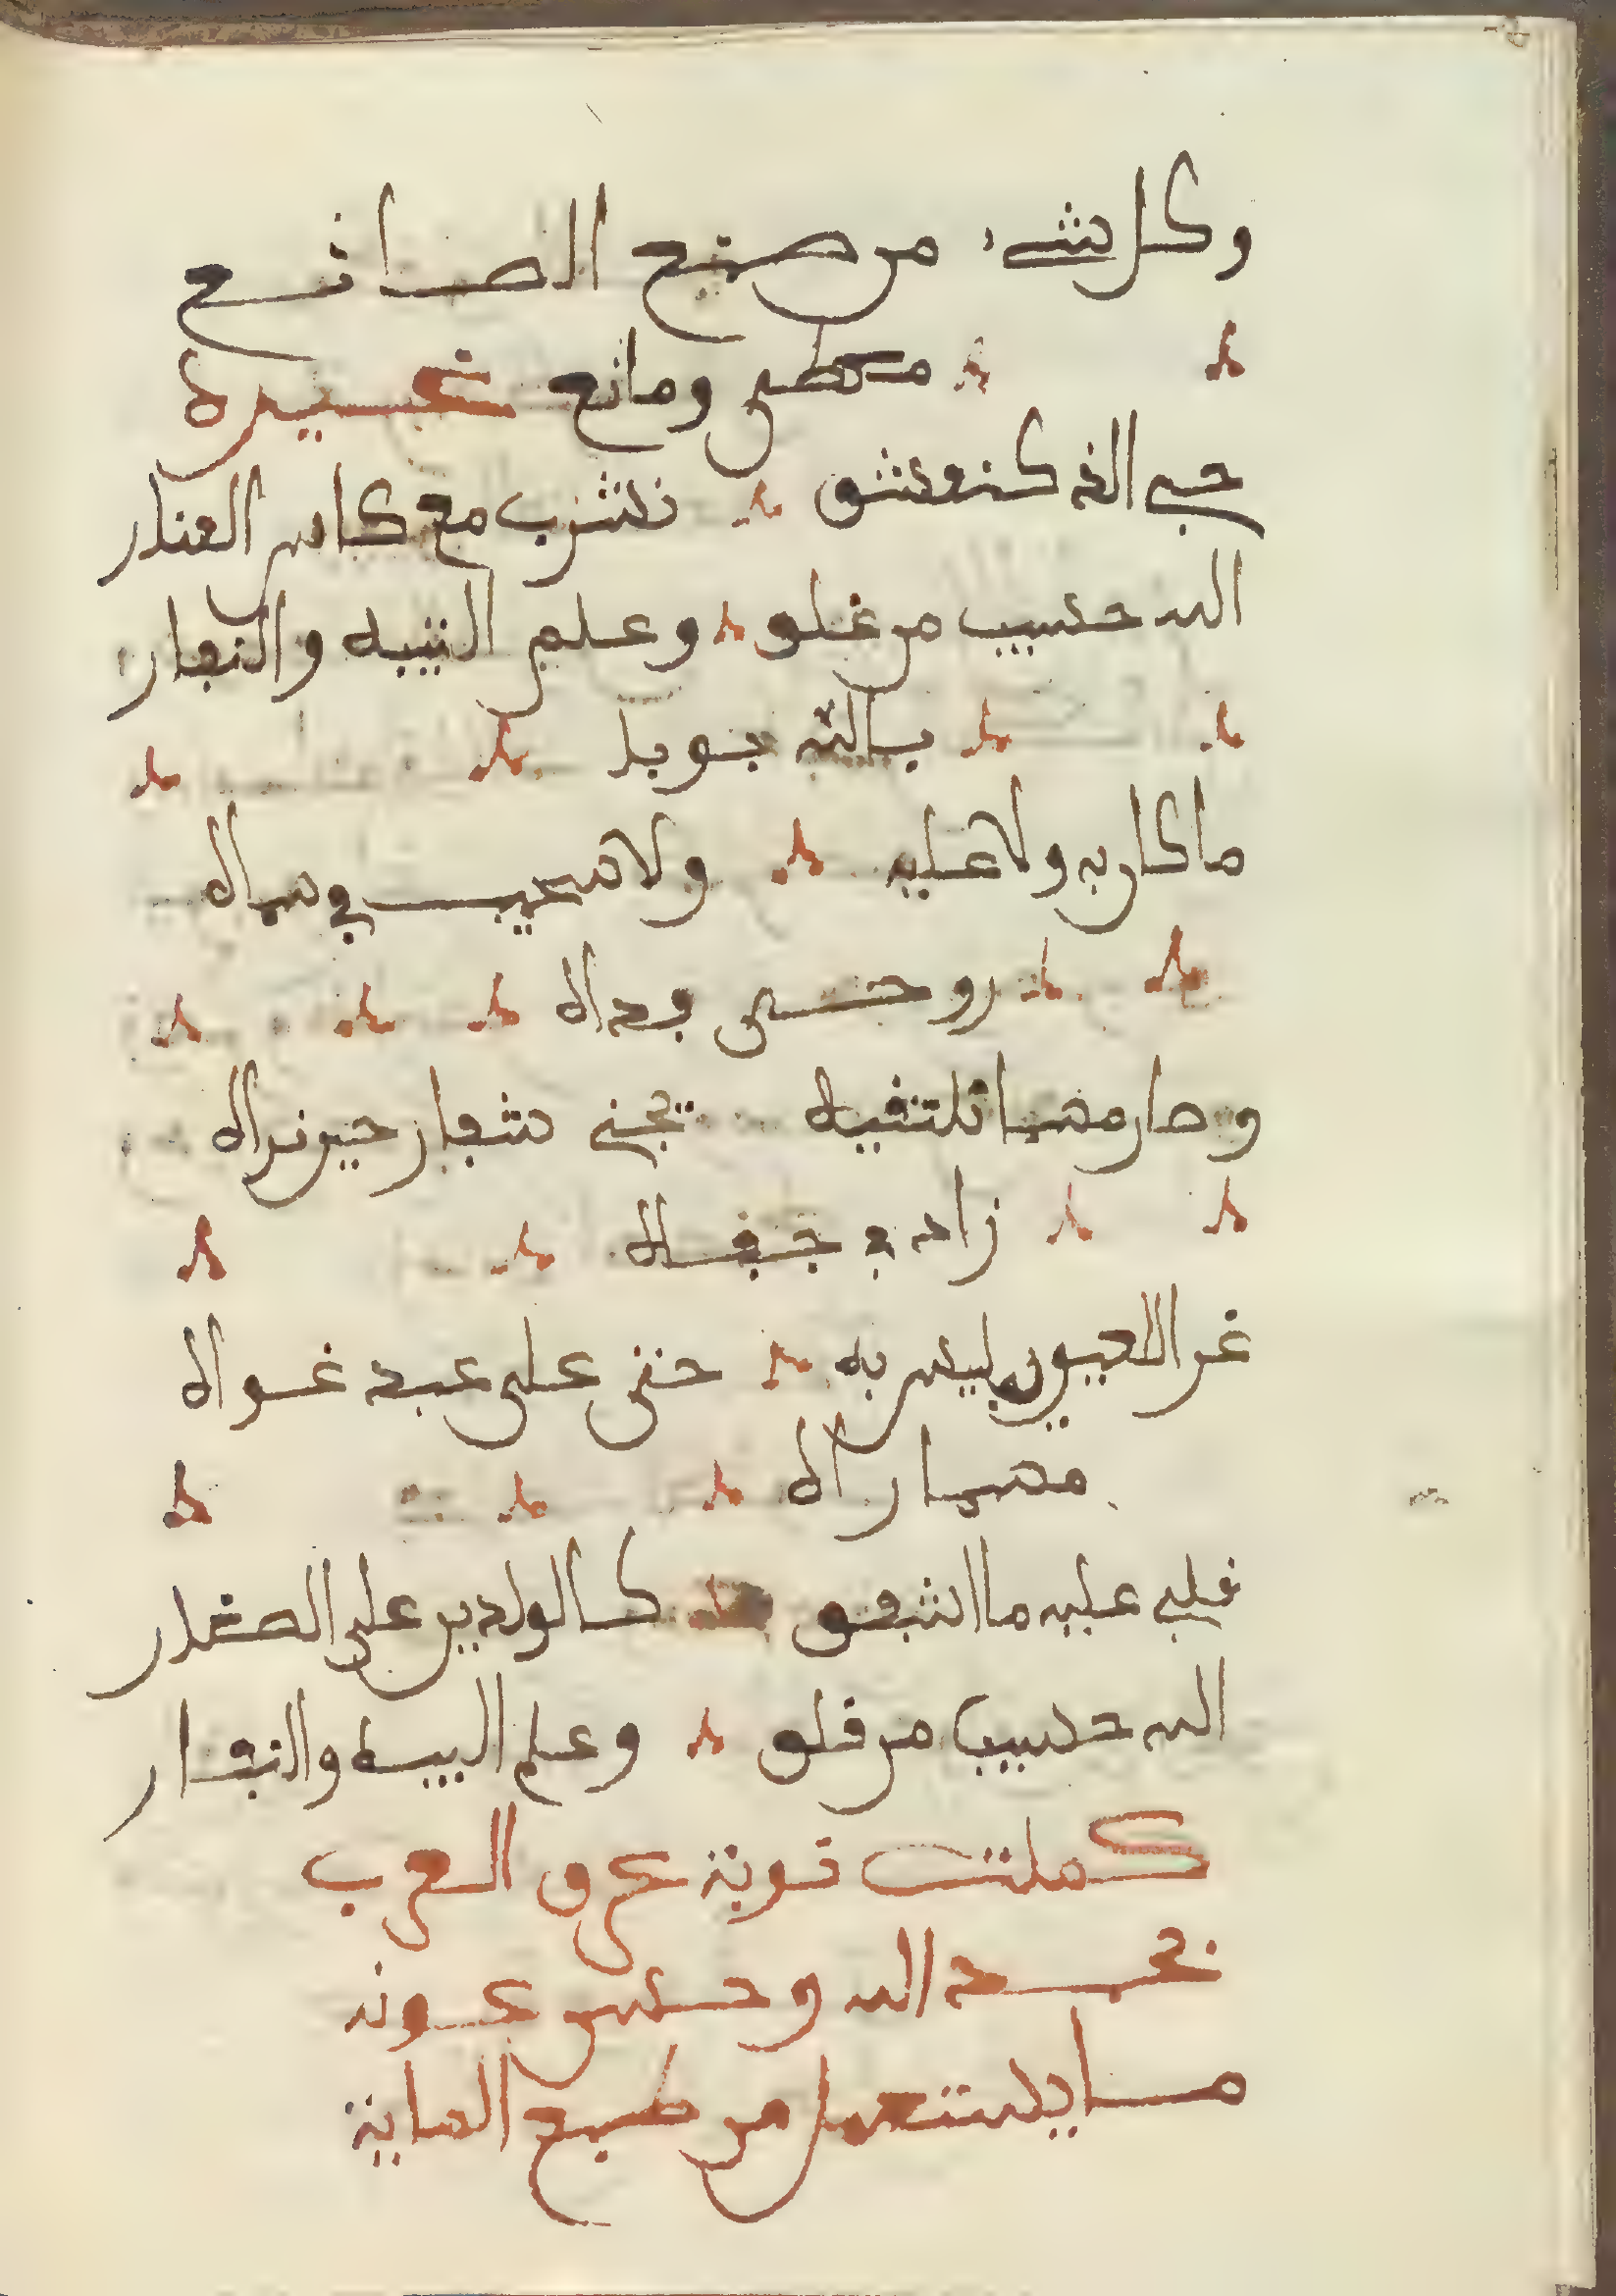 وكل شيء من صنع الصانع
معطي ومانع غيره
حبي الذ كنعشق نشرب مع كاس العقار
الله حسيب من خلو وعلم التيه والنفار
بالتيه جو بلا
ما كان به ولا عليه ولا سعيب في سوال
روحي فدال
وصار مهما نلتقيه يجني شفار حين نرال
زاد في جفال
غزال العيون لبيس به حتى على عبد غوال
مهما رال
قلبي عليه ما اشفق كالوالدين على الصغار
الله حسيب من قلو وعلم التيه والنفار
كملت نوبة عرق العرب
بحمد الله وحسن عونه
ما يستعمل من طبع الماية